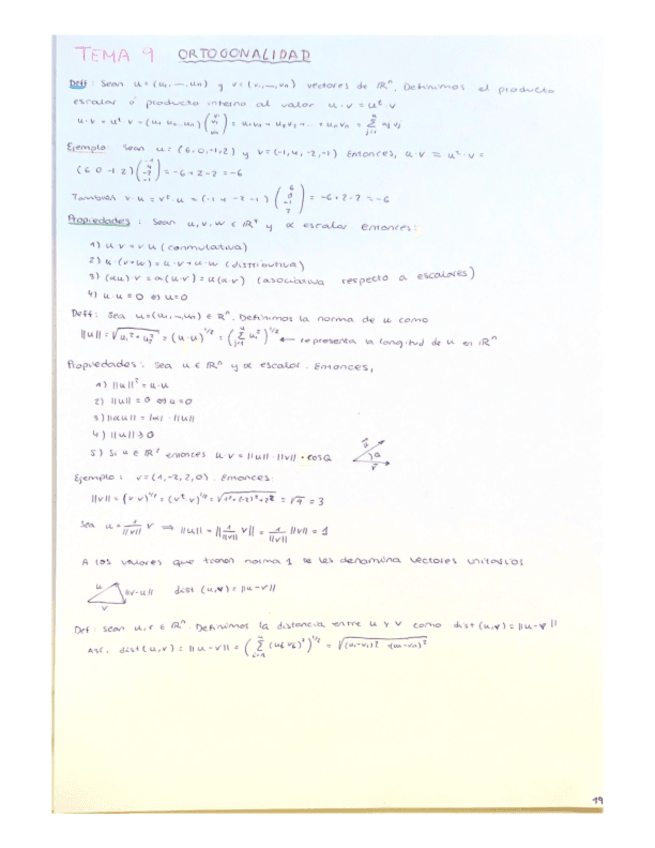 TEMA 9 ORTOGONALIDAD
Deff: Sean u=(u₁,…,uₙ) y v=(v₁,…,vₙ) vectores de ℝⁿ. Definimos el producto
escalar o producto interno al valor u·v=uᵗ·v
u·v=uᵗ v=(u₁ u₂…uₙ)(v₁ v₂ vₙ)= u₁v₁+u₂v₂+…+uₙvₙ=
Ejemplo: Sean u=(6,0,-1,2) y v=(-1,4,-2,-1) Entonces, u·v = uᵗ·v=
(6 0 -1 2)(-1 4 -2 -1)=-6+2-2=-6
También v·u=vᵗ·u=(-1 4 -2 -1)(6 0 -1 2)=-6+2-2=-6
Propiedades: Sean u,v,w ∈ y α escalar entonces:
1) u·v=v·u (conmutativa)
2) u·(v+w)=u·v+u·w (distributiva)
3) (αu)·v=α(u·v)=u(α·v) (asociativa respecto a escalares)
4) u·u=0 ⇔ u=0
Deff: Sea u=(u₁,…,uₙ) ∈ ℝⁿ. Definimos la norma de u como
||u||= =(u·u)^1/2= ← representa la longitud de u en ℝⁿ
Propiedades: Sea u ∈ ℝⁿ y α escalar. Entonces,
1) ||u||²=u·u
2) ||u||=0 ⇔ u=0
3) ||αu||=|α|·||u||
4) ||u||≥0
5) Si u ∈ ℝ² entonces u·v=||u||·||v||·cos
Ejemplo: v=(1,-2,2,0). Entonces:
||v||=(v·v)^1/2=(vᵗ v)^1/2= =3
Sea u=1/||v|| v ⟹ ||u||=||1/||v|| v||=1/||v|| ||v||=1
A los valores que tienen norma 1 se les denomina vectores unitarios
u ||v-u|| dist (u,v)=||u-v||
v
Def: Sean u,v ∈ ℝⁿ. Definimos la distancia entre u y v como dist(u,v)=||u-v||
Así, dist(u,v)=||u-v||=
19